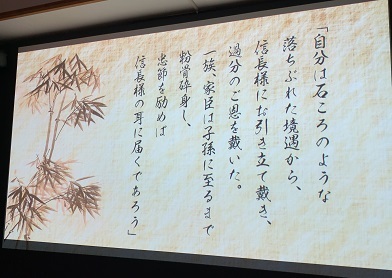 「自分は石ころのような
落ちぶれた境遇から、
信長様にお引き立て戴き、
過分のご恩を戴いた。
一族、家臣は子孫に至るまで
粉骨砕身し、
忠節を励めば
信長様の耳に届くであろう」